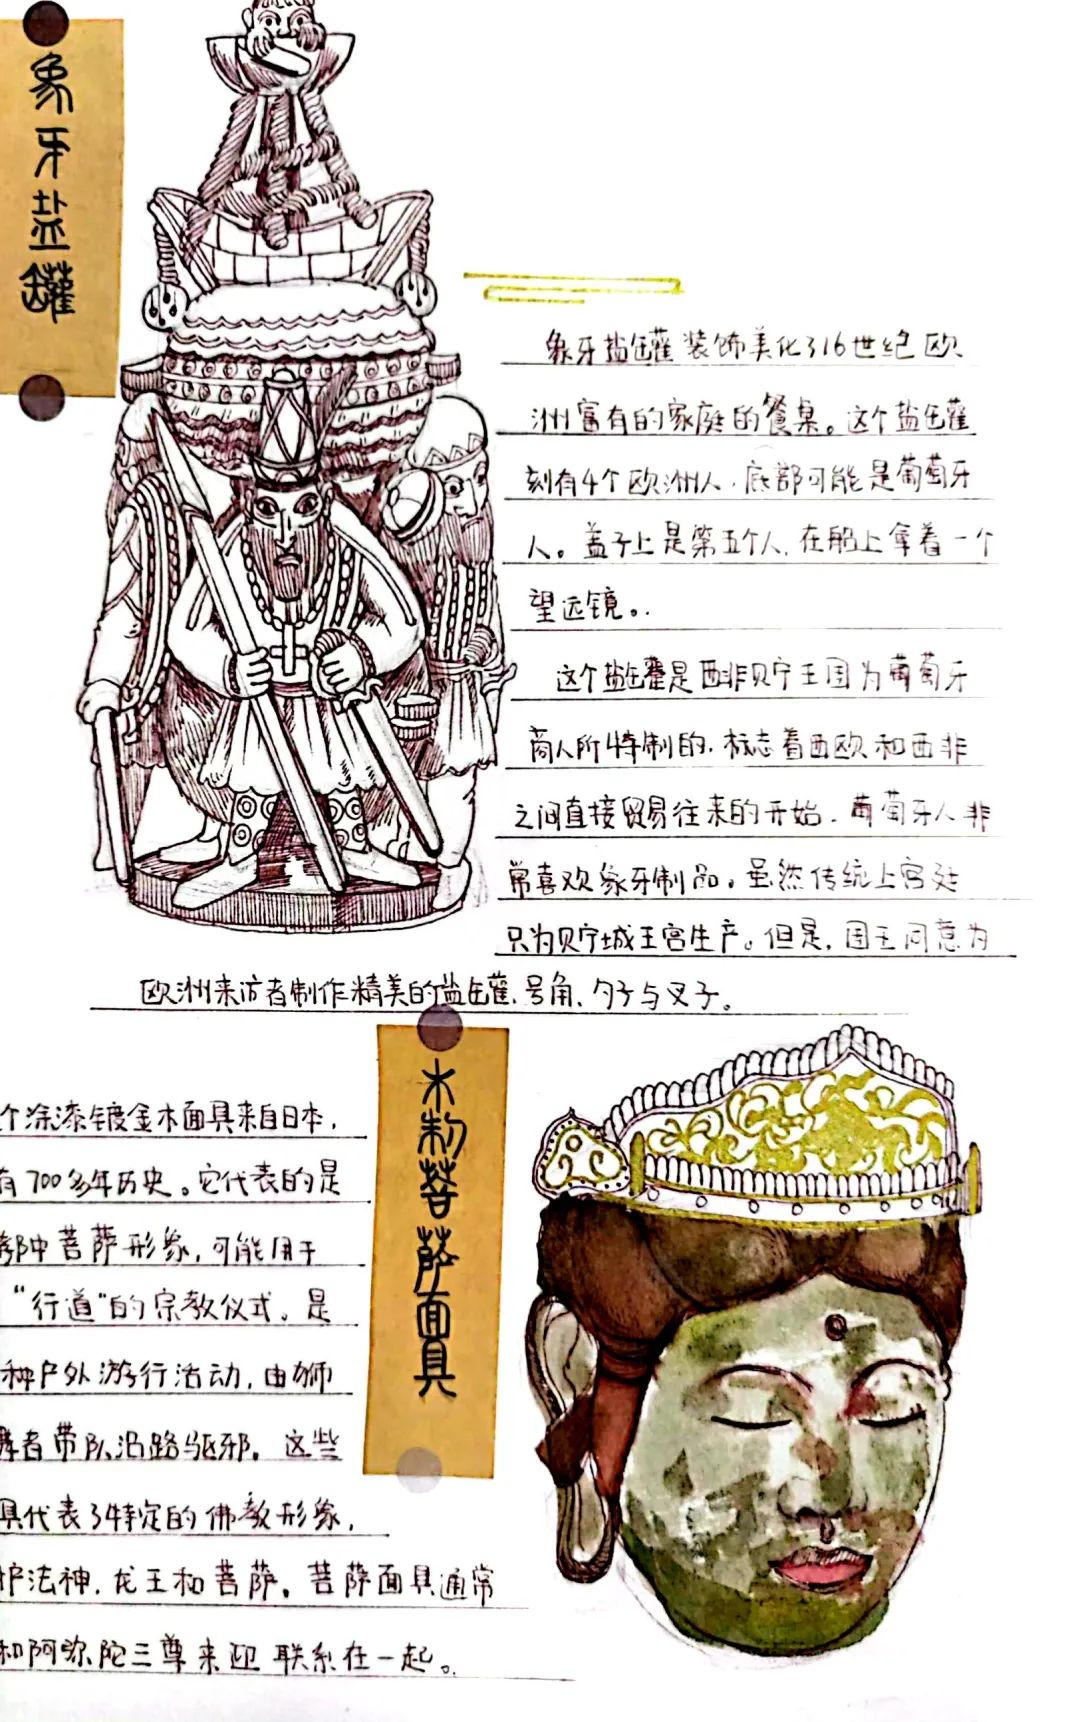 象牙盐罐
象牙盐罐装饰美化了16世纪欧
洲富有的家庭的餐桌。这个盐罐
刻有4个欧洲人，底部可能是葡萄牙
人。盖子上是第五个人，在船上拿着一个
望远镜。
这个盐罐是西非贝宁王国为葡萄牙
商人所特制的，标志着西欧和西非
之间直接贸易往来的开始，葡萄牙人非
常喜欢象牙制品。虽然传统上宫廷
只为贝宁城王宫生产。但是，国王同意为
欧洲来访者制作精美的盐罐、号角、勺子与叉子。
木制菩萨面具
个涂漆镀金木面具来自日本，
有700多年历史。它代表的是
教中菩萨形象，可能用于
“行道”的宗教仪式。是
种户外游行活动，由狮
舞者带队沿路驱邪。这些
具代表了特定的佛教形象，
护法神，龙王和菩萨。菩萨面具通常
和阿弥陀三尊来迎联系在一起。